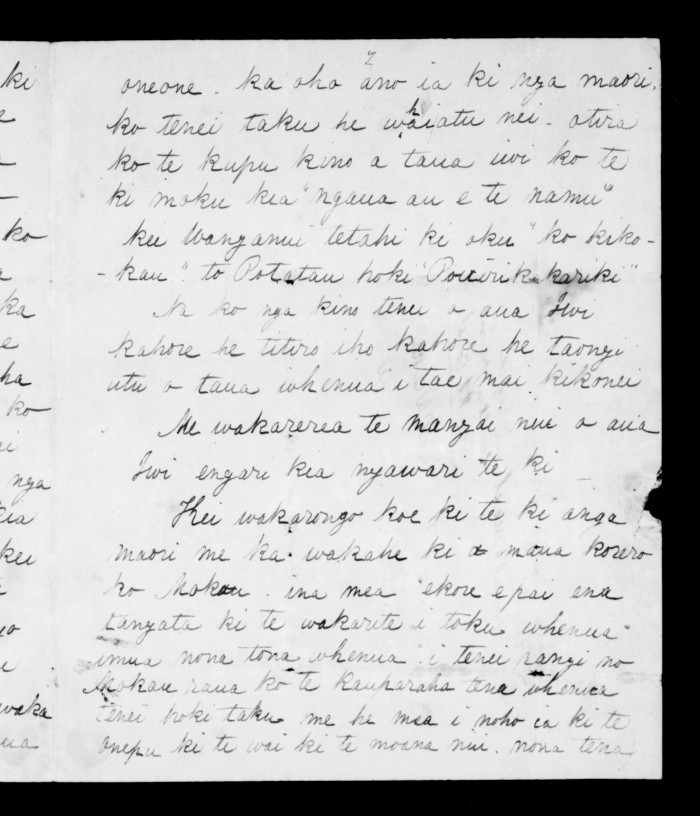 7
oneone. ka oho ano ia ki nga maori.
ko tenei taku he whaiatu nei. otira
ko te kupu kino a taua iwi ko te
ki moku kia "ngaua au e te namu"
kei Wanganui tetahi ki oku "ko kiko-
-kau". to Potatau hoki
Na ko nga kino tenei o aua Iwi
kahore he titiro iho kahore he taonga
utu o taua whenua i tae mai kikonei
Me wakarerea te mangai nui o aua
Iwi engari kia ngawari te ki
Kei wakarongo koe ki te ki anga
maori me ka wakahe ki a maua korero
ko Mokau. ina mea "ekore epai ena
tangata ki te wakarite i toku whenua"
imua nona tona whenua. i tenei rangi no
Mokau raua ko te Rauparaha tena whenua
tenei hoki taku me he mea i noho ia ki te
onepu ki te wai ki te moana nui. nona tena
ki
ko
ka
ha
ko
nga
kia
kei
waka